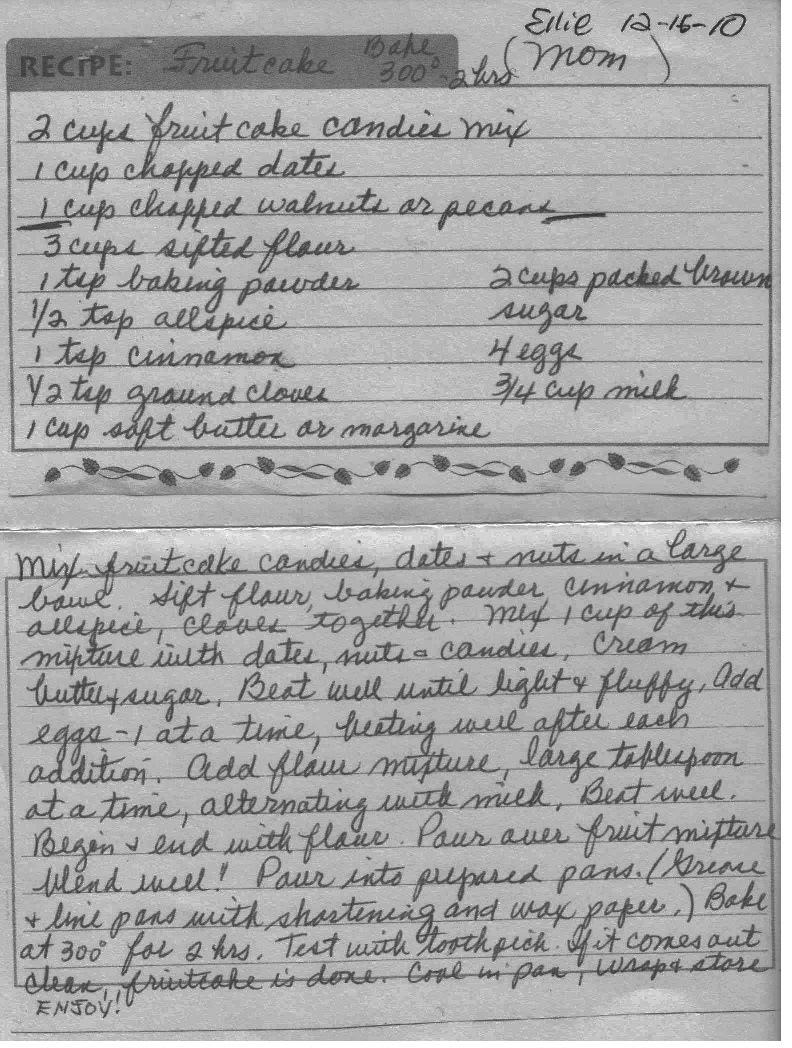 Ellie 12-15-10
(Mom)
RECIPE: Fruitcake Bake 300° - 2 hrs
2 cups fruit cake candies mix
1 cup chopped dates
1 cup chopped walnuts or pecans
3 cups sifted flour
1 tsp baking powder
1/2 tsp allspice
1 tsp cinnamon
1/2 tsp ground cloves
1 cup soft butter or margarine
2 cups packed brown
sugar
4 eggs
3/4 cup milk
Mix fruitcake candies, dates + nuts in a large
bowl. Sift flour, baking powder, cinnamon +
allspice, cloves together. Mix 1 cup of this
mixture with dates, nuts + candies. Cream
butter + sugar. Beat well until light + fluffy. Add
eggs - 1 at a time, beating well after each
addition. Add flour mixture, large tablespoon
at a time, alternating with milk. Beat well.
Begin + end with flour. Pour over fruit mixture
blend well! Pour into prepared pans. (Grease
+ line pans with shortening and wax paper.) Bake
at 300° for 2 hrs. Test with toothpick. If it comes out
clean, fruitcake is done. Cool in pan, wrap + store
ENJOY!